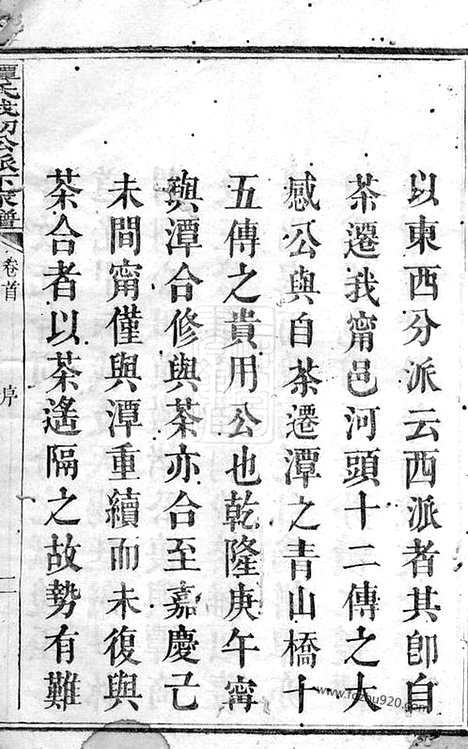 以東西分派云西派者其卽自
茶遷我甯邑河頭十二傳之大
感公與自茶遷潭之青山橋十
五傳之貴用公也乾隆庚午甯
與潭合修與茶亦合至嘉慶己
未間甯僅與潭重續而未復與
茶合者以茶遙隔之故勢有難
譚氏 公派下家譜
卷首
序
www.fozhu920.com